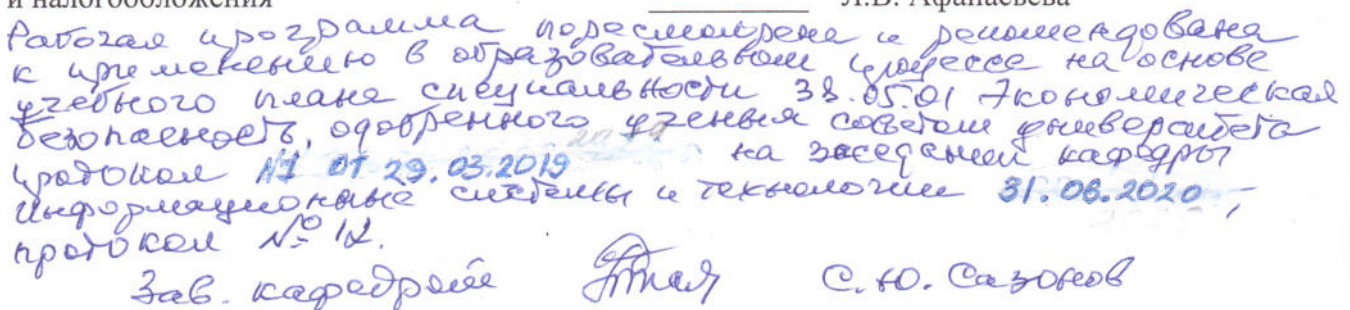 и налогообложения Л.В. Афанасьева
Рабочая программа пересмотрена и рекомендована
к применению в образовательном процессе на основе
учебного плана специальности 38.05.01 Экономическая
безопасность, одобренного ученым советом университета
протокол №1 от 29.03.2019 на заседании кафедры
Информационные системы и технологии 31.06.2020,
протокол № 12.
Зав. кафедрой С.Ю. Сазонов